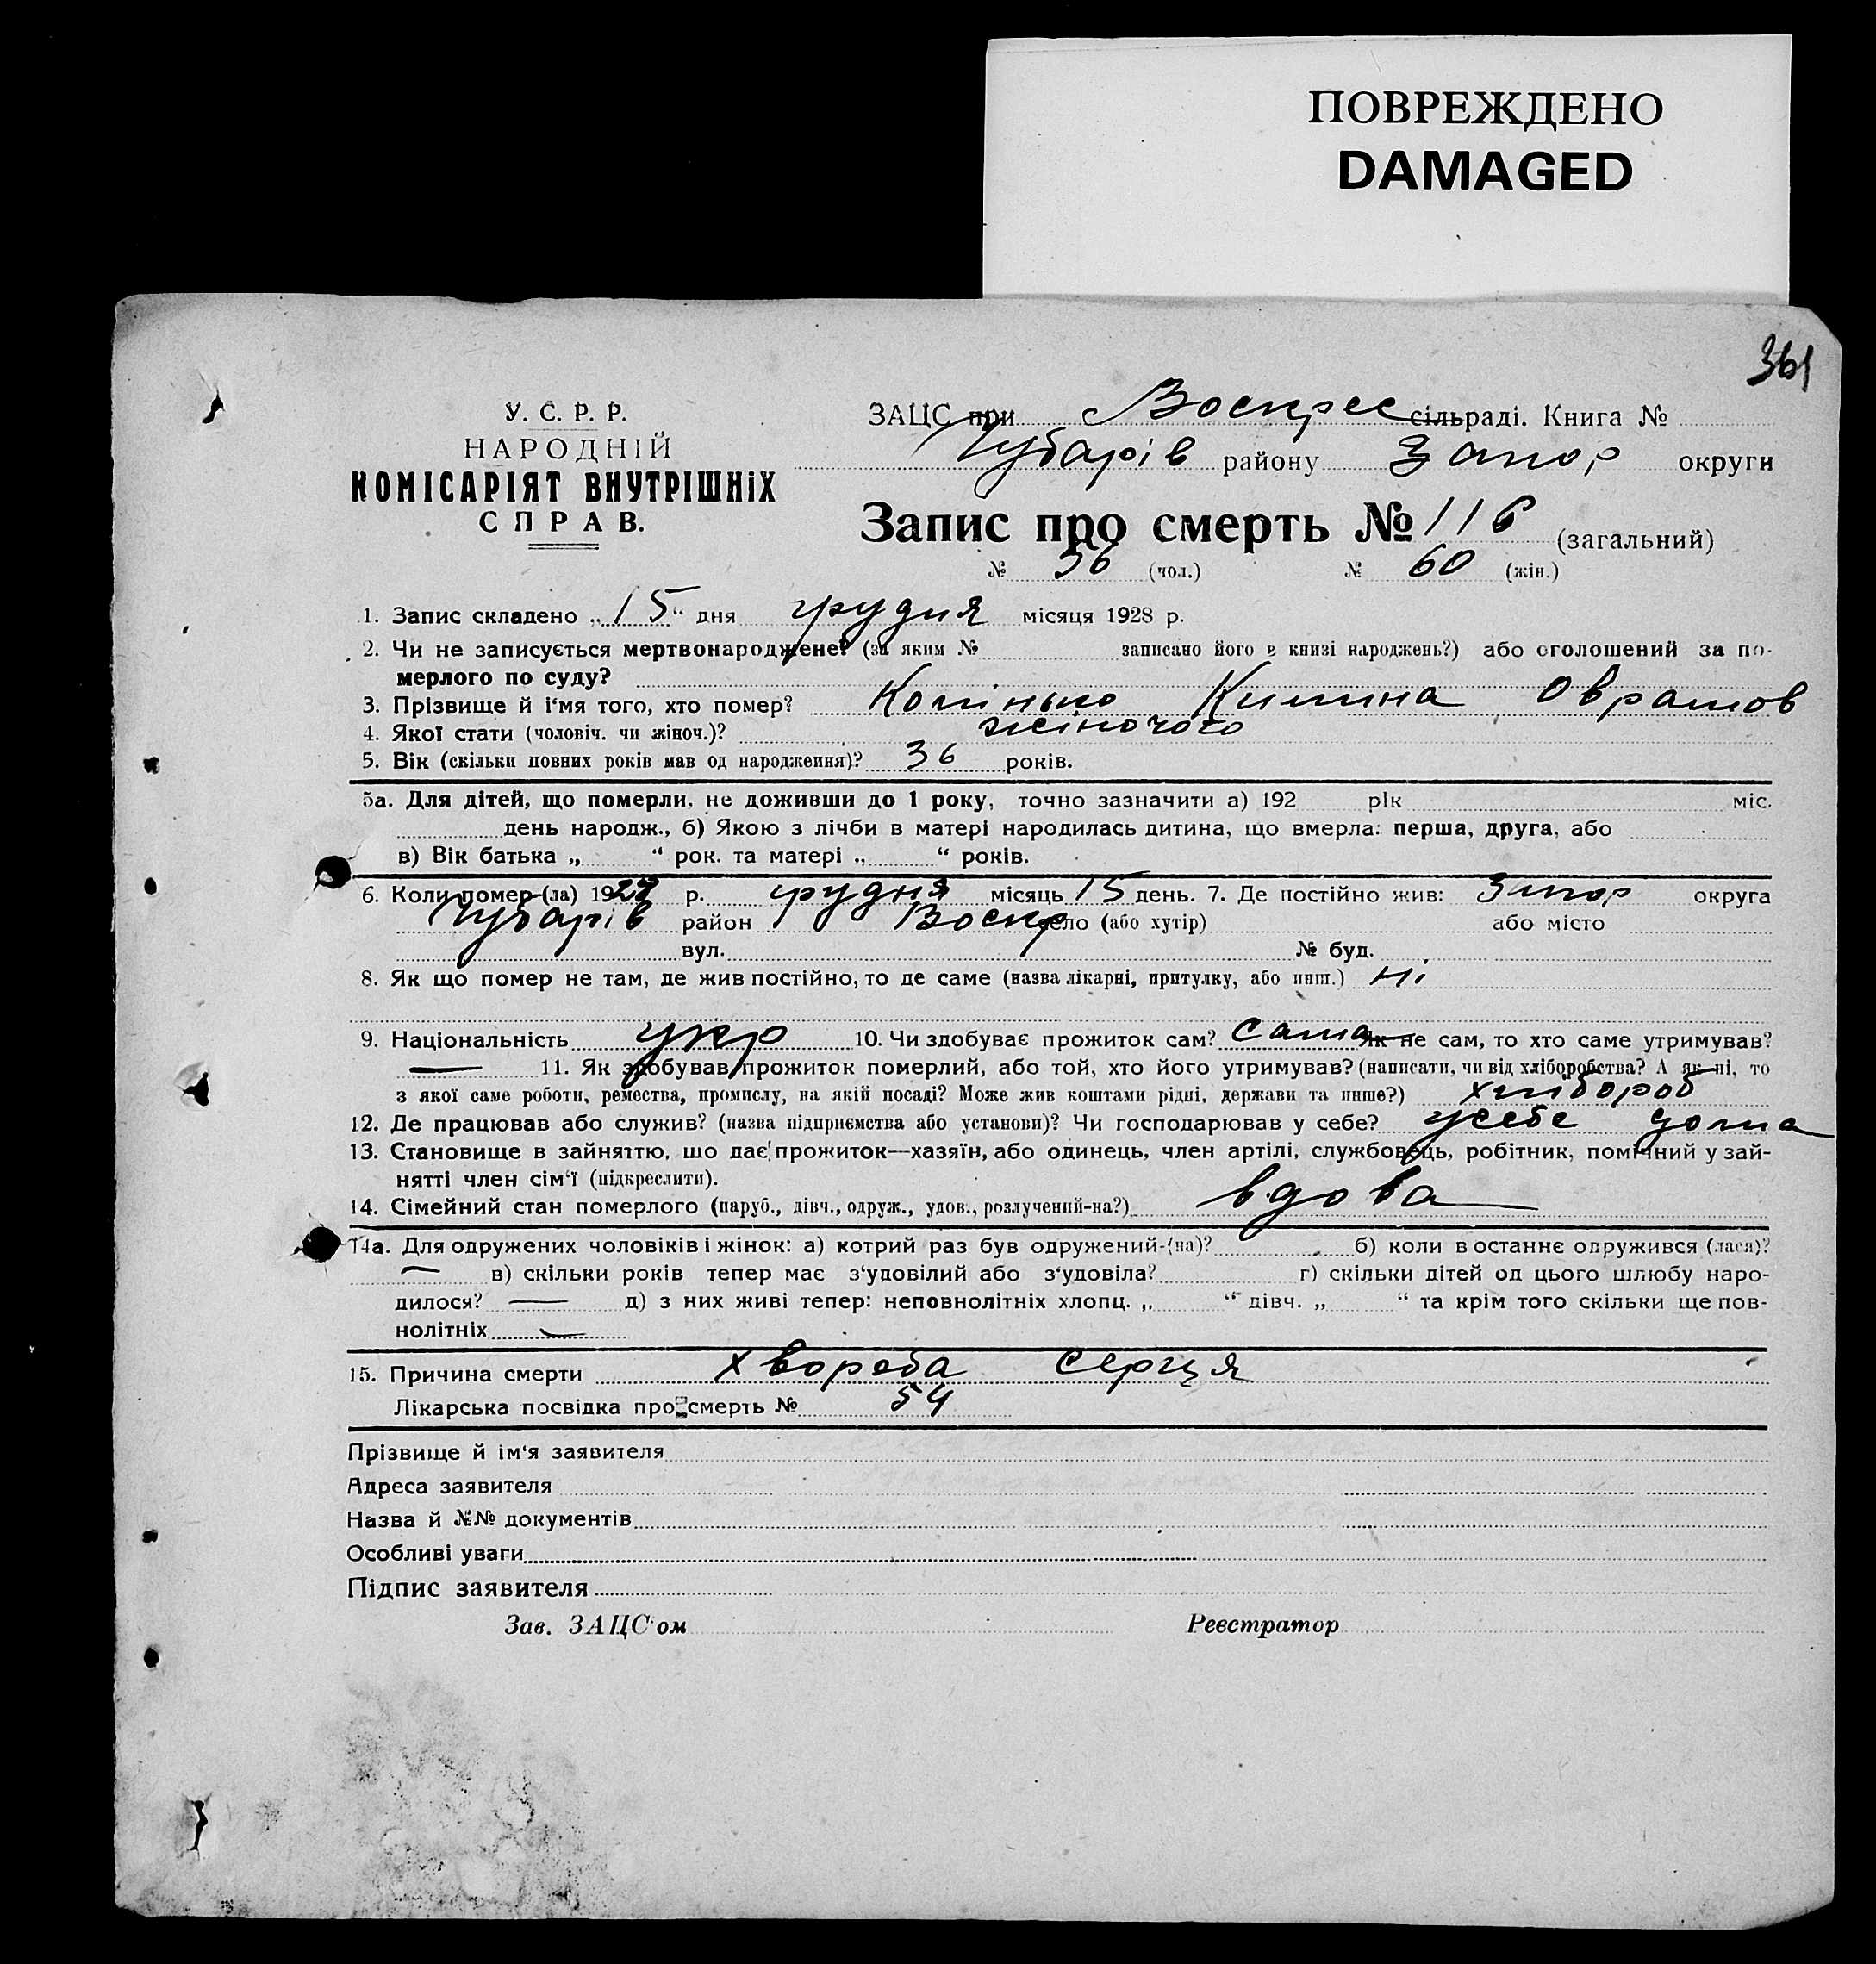 ПОВРЕЖДЕНО
DAMAGED
361
У. С. Р. Р.
НАРОДНІЙ
КОМІСАРІЯТ ВНУТРІШНІХ
СПРАВ.
ЗАЦС при с Воскрес сільраді. Книга №
Чубарів району Запор округи
Запис про смерть № 116 (загальний)
№ 56 (чол.) № 60 (жін.)
1. Запис складено „15“ дня грудня місяця 1928 р.
2. Чи не записується мертвонароджене? (за яким № записано його в книзі народжень?) або оголошений за по-
мерлого по суду?
3. Прізвище й і'мя того, хто помер?
4. Якої стати (чоловіч. чи жіноч.)? жіночого
5. Вік (скільки повних років мав од народження)? 36 років.
5а. Для дітей, що померли, не доживши до 1 року, точно зазначити а) 192 рік міс.
день народж., б) Якою з лічби в матері народилась дитина, що вмерла: перша, друга, або
в) Вік батька „ “ рок. та матері „ “ років.
6. Коли помер (ла) 1928 р. грудня місяць 15 день. 7. Де постійно жив: Запор округа
Чубарів район Воскр село (або хутір) або місто
вул. № буд.
8. Як що помер не там, де жив постійно, то де саме (назва лікарні, притулку, або инш.) ні
9. Національність укр 10. Чи здобуває прожиток сам? сама Як не сам, то хто саме утримував?
— 11. Як здобував прожиток померлий, або той, хто його утримував? (написати, чи від хліборобства? А як ні, то
з якої саме роботи, ремества, промислу, на якій посаді? Може жив коштами рідні, держави та инше?) хлібороб
12. Де працював або служив? (назва підприємства або установи)? Чи господарював у себе? усебе дома
13. Становище в зайняттю, що дає прожиток—хазяїн, або одинець, член артілі, службовець, робітник, помічний у зай-
нятті член сім'ї (підкреслити).
14. Сімейний стан померлого (паруб., дівч., одруж., удов., розлучений-на?) вдова
14а. Для одружених чоловіків і жінок: а) котрий раз був одружений-(на)? б) коли в останнє одружився (лася)?
— в) скільки років тепер має з'удовілий або з'удовіла? г) скільки дітей од цього шлюбу наро-
дилося? — д) з них живі тепер: неповнолітніх хлопц. „ “ дівч. „ “ та крім того скільки ще пов-
нолітніх —
15. Причина смерти хвороба серця
Лікарська посвідка про смерть № 54
Прізвище й ім'я заявителя
Адреса заявителя
Назва й №№ документів
Особливі уваги
Підпис заявителя
Зав. ЗАЦС'ом Реєстратор